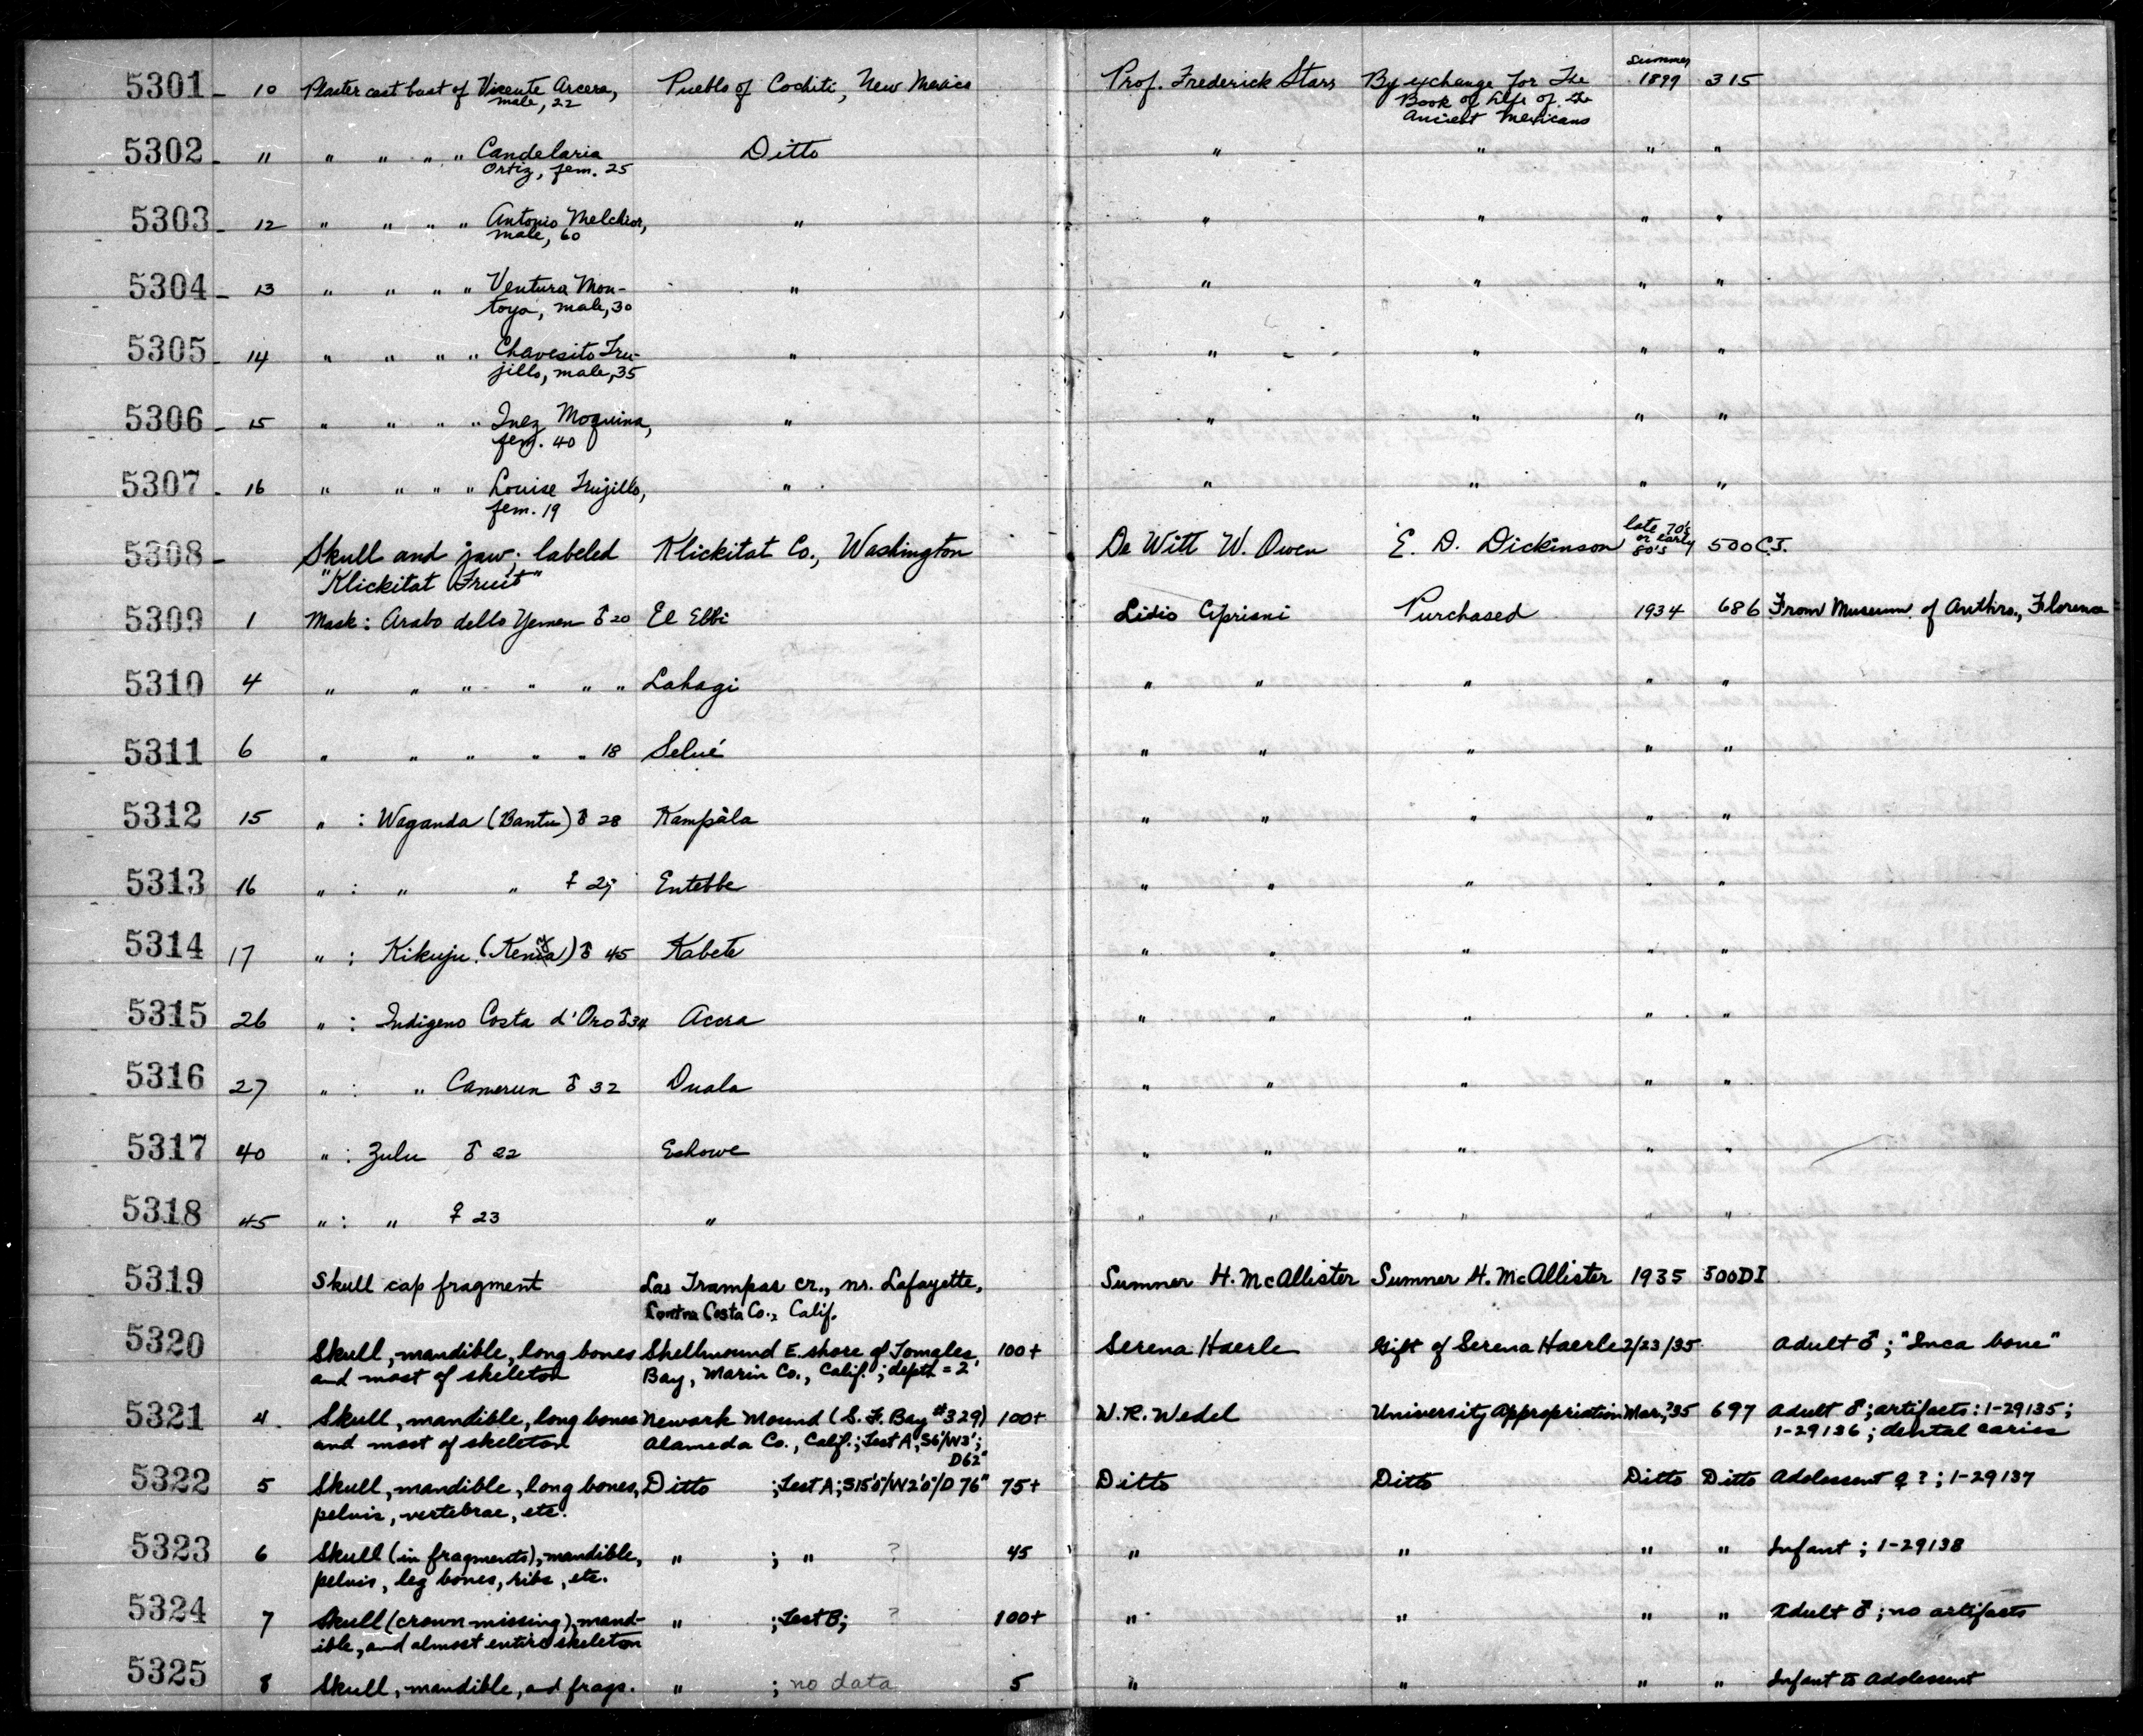 5301 - 10 Plaster cast bust of Vicente Arcera, Pueblo of Cochiti, New Mexico Prof. Frederick Starr By exchange for The Summer 1899 315
male, 22 Book of Life of the
Ancient Mexicans
5302 - " " " " " Candelaria Ditto " " " "
Ortiz, fem. 25
5303 - 12 " " " " Antonio Melchior, " " " " "
male, 60
5304 - 13 " " " " Ventura Mon- " " " " "
toya, male, 30
5305 - 14 " " " " Chavesito Tru- " " " " "
jillo, male, 35
5306 - 15 " " " " Inez Moquina, " " " " "
fem. 40
5307 - 16 " " " " Louise Trujillo, " " " " "
fem. 19
5308 - Skull and jaw; labeled Klickitat Co., Washington De Witt W. Owen E. D. Dickinson late 70's or early 80's 500 C.J.
"Klickitat Fruit"
5309 1 Mask: Arabo dello Yemen ♂ 20 El Ebbi Lidio Cipriani Purchased 1934 686 From Museum of Anthro., Florence
5310 4 " " " " " " Lahagi " " " " "
5311 6 " " " " " 18 Selué " " " " "
5312 15 " : Waganda (Bantu) ♂ 28 Kampàla " " " " "
5313 16 " : " " ♀ 25 Entebbe " " " " "
5314 17 " : Kikuju (Kenia) ♂ 45 Kabete " " " " "
5315 26 " : Indigeno Costa d'Oro ♂ 34 Accra " " " " "
5316 27 " : " Camerun ♂ 32 Duala " " " " "
5317 40 " : Zulu ♂ 22 Eshowe " " " " "
5318 45 " : " ♀ 23 " " " " " "
5319 Skull cap fragment Las Trampas cr., nr. Lafayette, Sumner H. McAllister Sumner H. McAllister 1935 500DI
Contra Costa Co., Calif.
5320 Skull, mandible, long bones Shellmound E. shore of Tomales 100+ Serena Haerle Gift of Serena Haerle 2/23/35 Adult ♂; "Inca bone"
and most of skeleton Bay, Marin Co., Calif.; depth = 2'
5321 4 Skull, mandible, long bones Newark Mound (S. F. Bay #329) 100+ W. R. Wedel University Appropriation Mar., '35 697 Adult ♂; artifacts: 1-29135;
and most of skeleton Alameda Co., Calif.; Test A; S6'/W3'; 1-29136; dental caries
D62"
5322 5 Skull, mandible, long bones, Ditto ; Test A; S15'0"/W2'0"/D 76" 75+ Ditto Ditto Ditto Ditto Adolescent ♀?; 1-29137
pelvis, vertebrae, etc.
5323 6 Skull (in fragments), mandible, " ; " ? 45 " " " " Infant; 1-29138
pelvis, leg bones, ribs, etc.
5324 7 Skull (crown missing), mand- " ; Test B; ? 100+ " " " " Adult ♂; no artifacts
ible, and almost entire skeleton
5325 8 Skull, mandible, and frags. " ; no data 5 " " " " Infant to adolescent